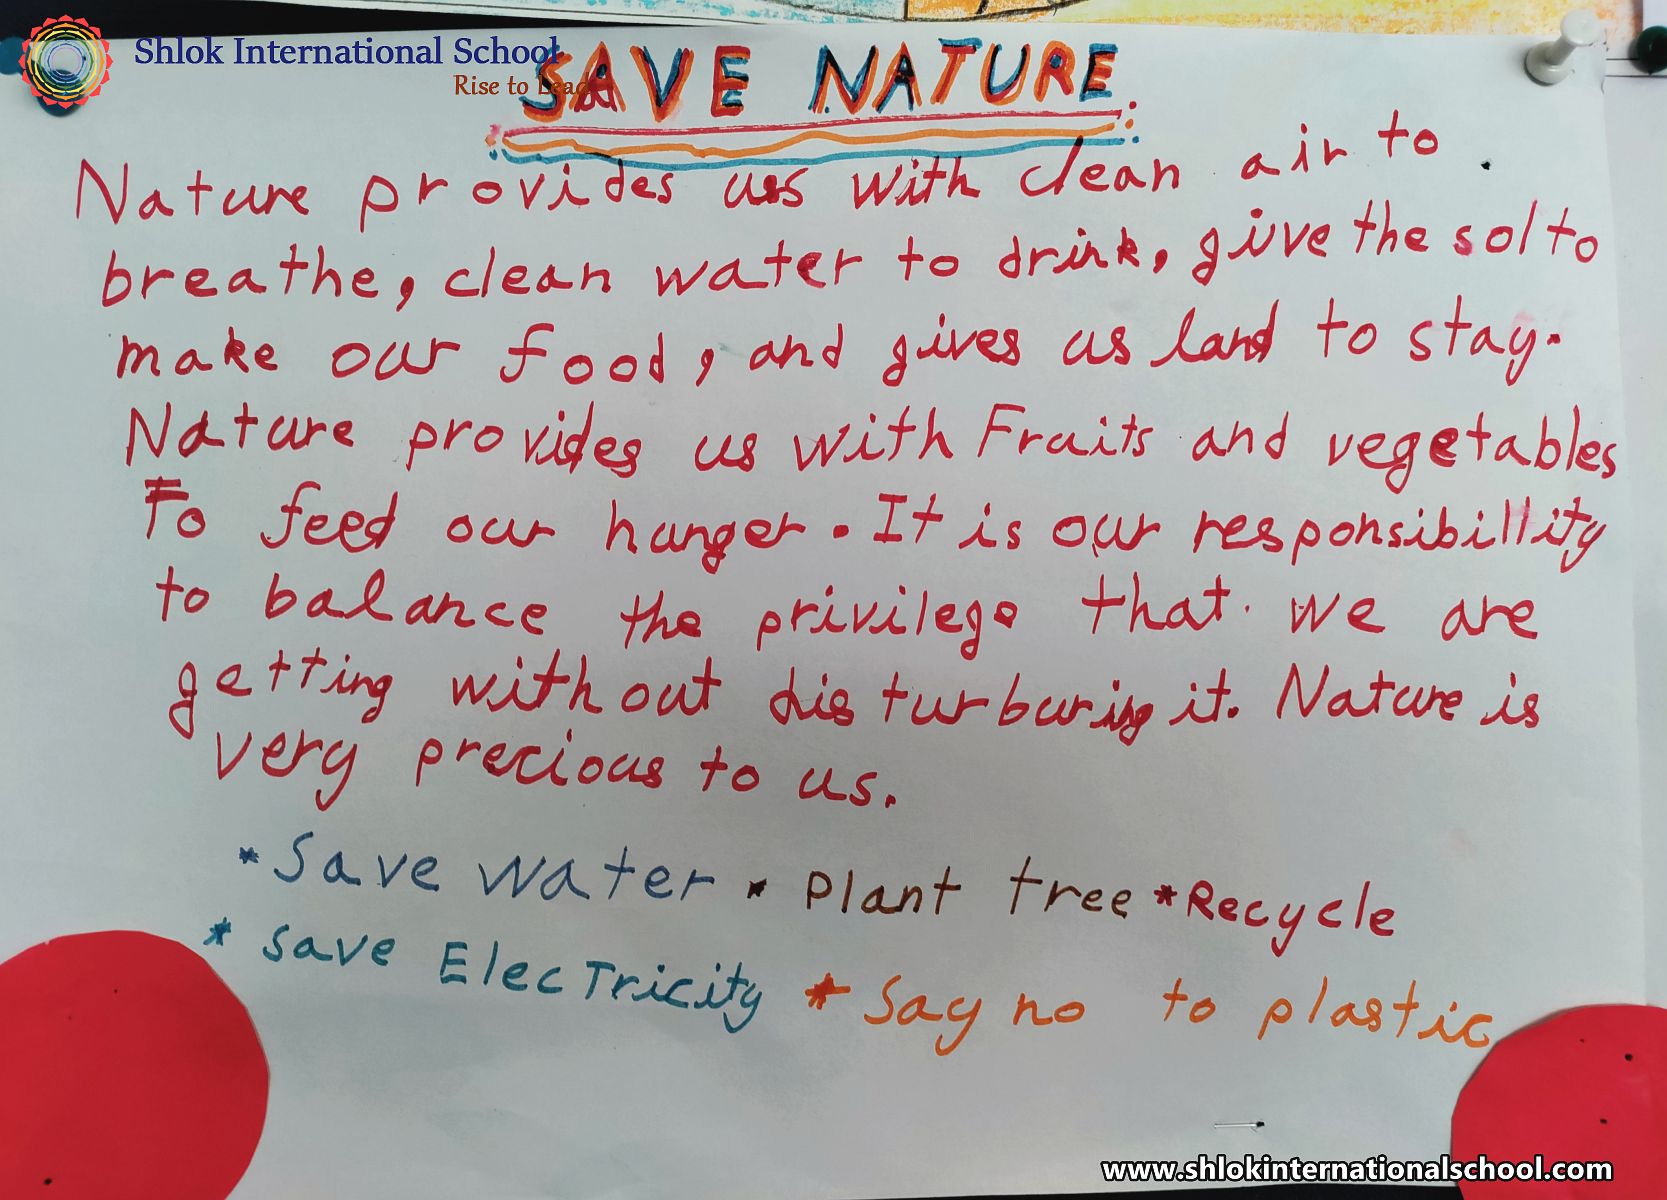 Shlok International School
Rise to Lead
SAVE NATURE
Nature provides us with clean air to
breathe, clean water to drink, give the sol to
make our food, and gives us land to stay.
Nature provides us with Fruits and vegetables
To feed our hunger. It is our responsibillity
to balance the privilege that we are
getting without disturburing it. Nature is
very precious to us.
* Save water * Plant tree * Recycle
* save ElecTricity * Say no to plastic
www.shlokinternationalschool.com